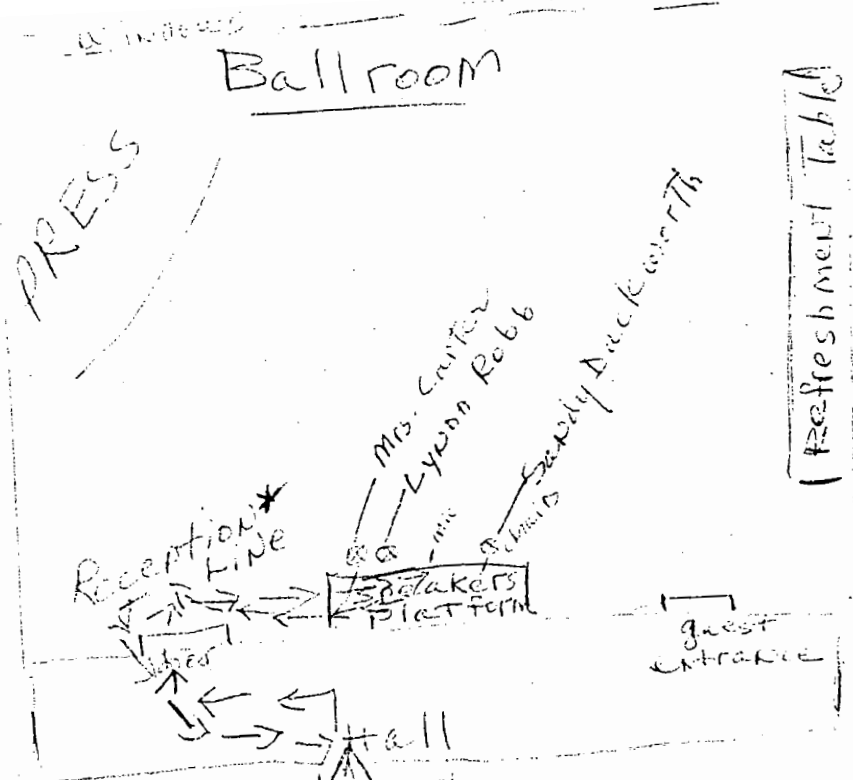 Windows
Ballroom
PRESS
Refreshment Table
Mrs. Carter
Lynda Robb
Sandy Duckworth
mic
chairs
Reception*
Line
Speakers
Platform
guest
entrance
Hall